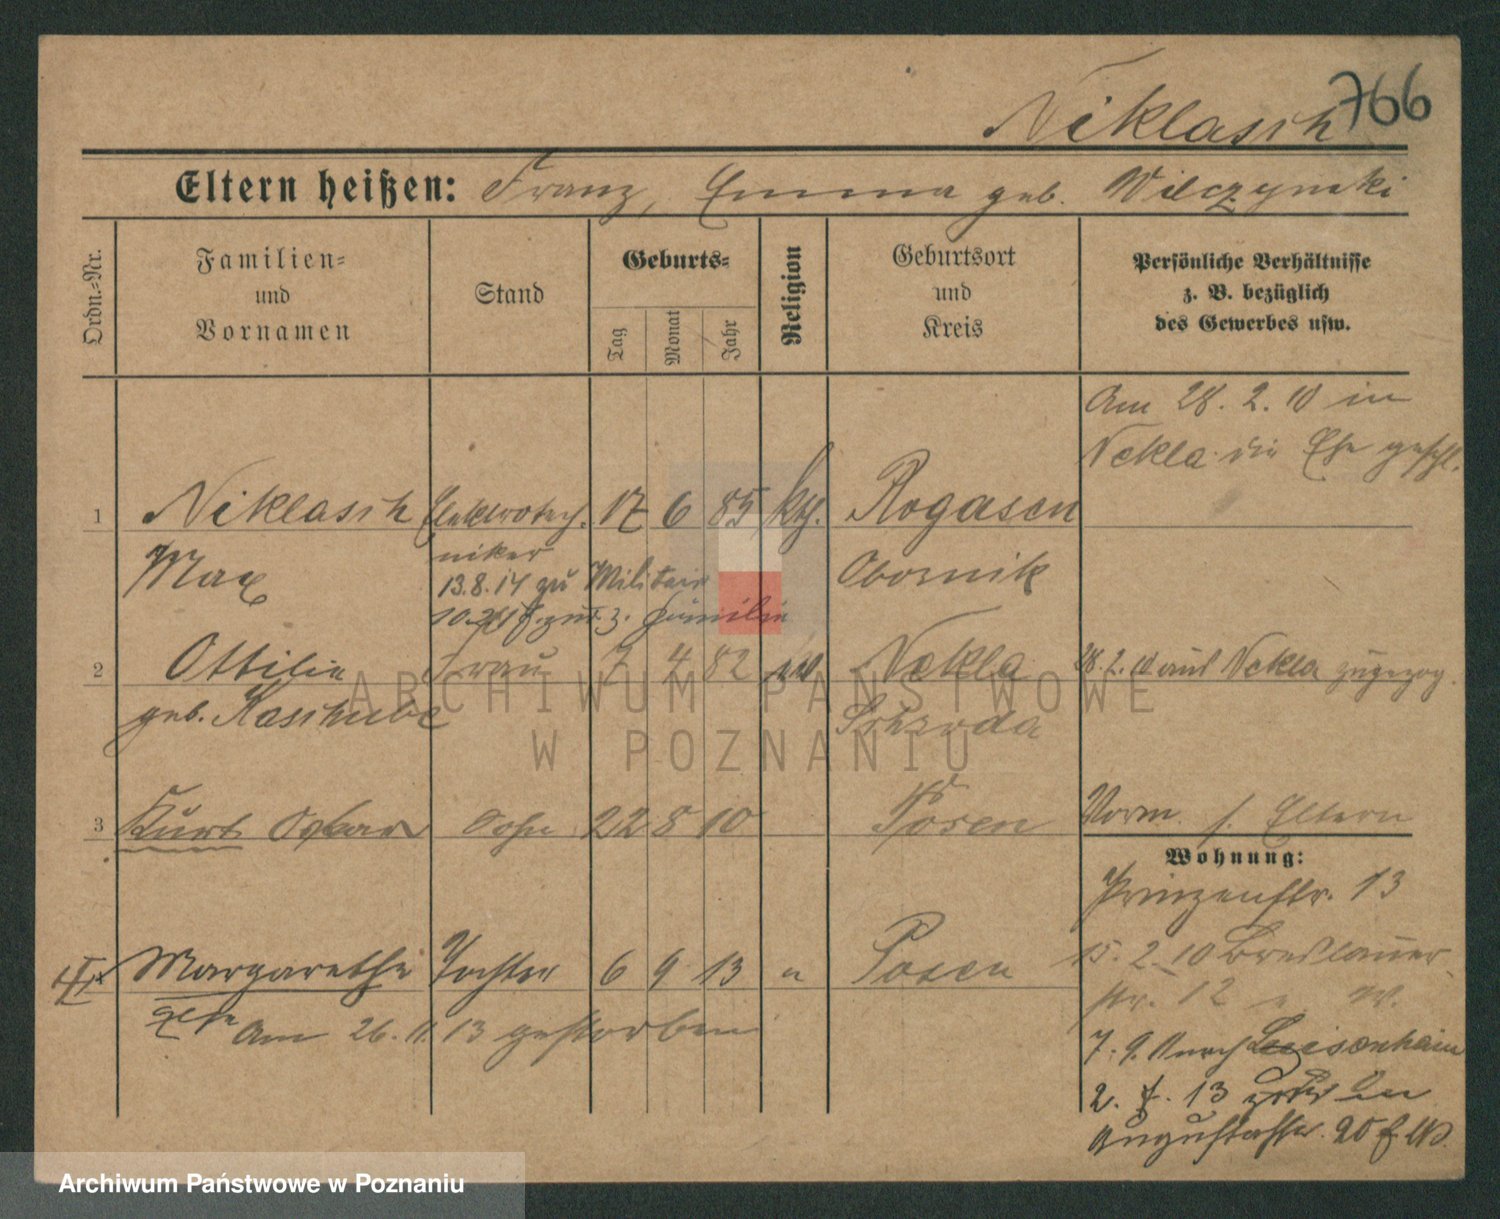 Niklasch 766
Eltern heißen: Franz, Emma geb. Wilczynski
Ordn.-Nr.
Familien-
und
Vornamen
Stand
Geburts-
Tag
Monat
Jahr
Religion
Geburtsort
und
Kreis
Persönliche Verhältnisse
z. B. bezüglich
des Gewerbes usw.
Am 28. 2. 10 in
Nekla die Ehe geschl.
1 Niklasch Elektrotech- 17 6 85 kth. Rogasen
Max niker Obornik
13.8.14 zu Militair
zur. z. Familie
2 Ottilie Frau 7 4 82 Nekla 28. 2. 10 aus Nekla zugezog.
geb. Kaschube Schroda
3 Kurt Oskar Sohn 22 8 10 Posen Worm. s. Eltern
Wohnung:
Prinzenstr. 13
Margarethe Tochter 6 9 13 " Posen
15. 2. 10 Breslauer-
str. 12
Am 26. 11. 13 gestorben
7. 9. Luisenhain
2. 13
Augustastr. 20
ARCHIWUM PAŃSTWOWE
W POZNANIU
Archiwum Państwowe w Poznaniu